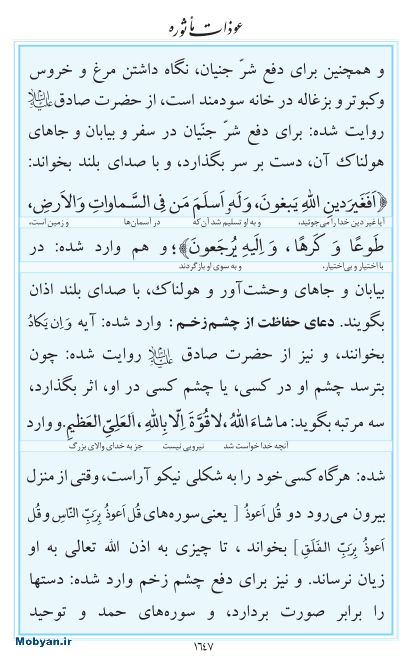 عوذات مأثوره
و همچنین برای دفع شرّ جنیان، نگاه داشتن مرغ و خروس
وکبوتر و بزغاله در خانه سودمند است، از حضرت صادق علیه‌السلام
روایت شده: برای دفع شرّ جنّیان در سفر و بیابان و جاهای
هولناك آن، دست بر سر بگذارد، و با صدای بلند بخواند:
﴿اَفَغَیرَ دینِ اللهِ یَبغونَ، وَلَهٗ اَسلَمَ مَن فِی السَّماواتِ وَالاَرضِ،
آیا غیر دین خدا را می‌جویند، و به او تسلیم شد آن‌که در آسمان‌ها و زمین است،
طَوعًا وَ کَرهًا، وَ اِلَیهِ یُرجَعونَ﴾؛ و هم وارد شده: در
با اختیار و بی‌اختیار، و به سوی او بازگردند
بیابان و جاهای وحشت‌آور و هولناك، با صدای بلند اذان
بگویند. دعای حفاظت از چشم‌زخم: وارد شده: آیه وَ اِن یَکادُ
بخوانند، و نیز از حضرت صادق علیه‌السلام روایت شده: چون
بترسد چشم او در کسی، یا چشم کسی در او، اثر بگذارد،
سه مرتبه بگوید: ما شاءَ اللهُ، لا قُوَّةَ اِلّا بِاللهِ، اَلعَلِیِّ العَظیمِ. و وارد
آنچه خدا خواست شد نیرویی نیست جز به خدای والای بزرگ
شده: هرگاه کسی خود را به شکلی نیکو آراست، وقتی از منزل
بیرون می‌رود دو قُل اَعوذُ [ یعنی سوره‌های قُل اَعوذُ بِرَبِّ النّاسِ و قُل
اَعوذُ بِرَبِّ الفَلَقِ ] بخواند ، تا چیزی به اذن الله تعالی به او
زیان نرساند. و نیز برای دفع چشم زخم وارد شده: دستها
را برابر صورت بردارد، و سوره‌های حمد و توحید
Mobyan.ir
۱۶۴۷